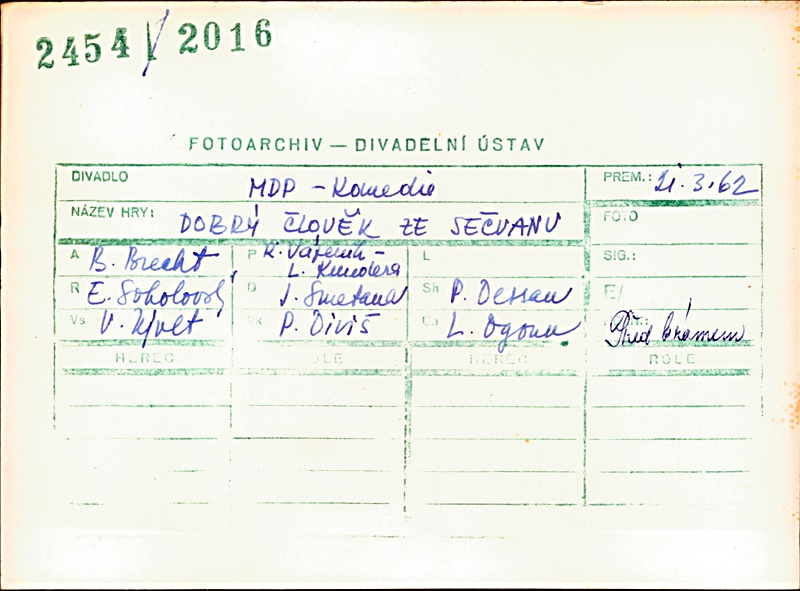 2454/2016
FOTOARCHIV — DIVADELNÍ ÚSTAV
DIVADLO MDP - Komedie PREM.: 21.3.62
NÁZEV HRY: DOBRÝ ČLOVĚK ZE SEČVANU FOTO
A B. Brecht P R. Vápeník - L. Kundera L SIG.:
R E. Sokolovský D J. Smetana Sh P. Dessau E/
Vs V. P. Diviš Ch L. Ogoun Před krámem
HEREC ROLE HEREC ROLE